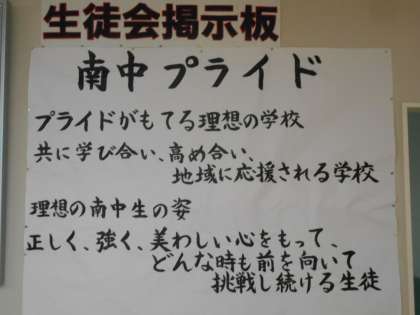 生徒会掲示板
南中プライド
プライドがもてる理想の学校
共に学び合い、高め合い、
地域に応援される学校
理想の南中生の姿
正しく、強く、美わしい心をもって、
どんな時も前を向いて
挑戦し続ける生徒